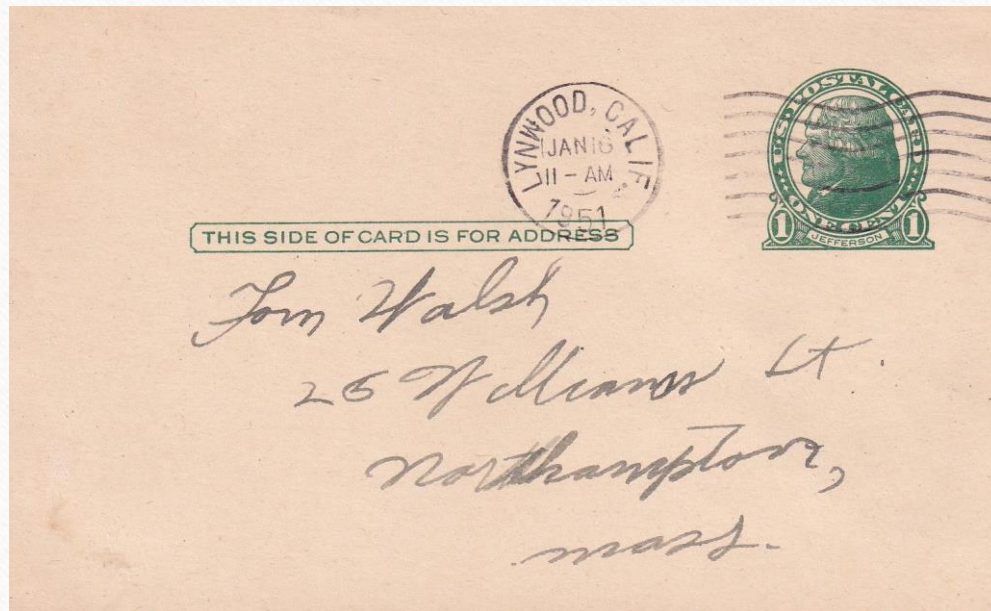 LYNWOOD, CALIF.
JAN 16
11-AM
1951
U.S. POSTAL CARD
ONE CENT
1 JEFFERSON 1
THIS SIDE OF CARD IS FOR ADDRESS
Tom Walsh
26 Williams St.
Northampton,
Mass.